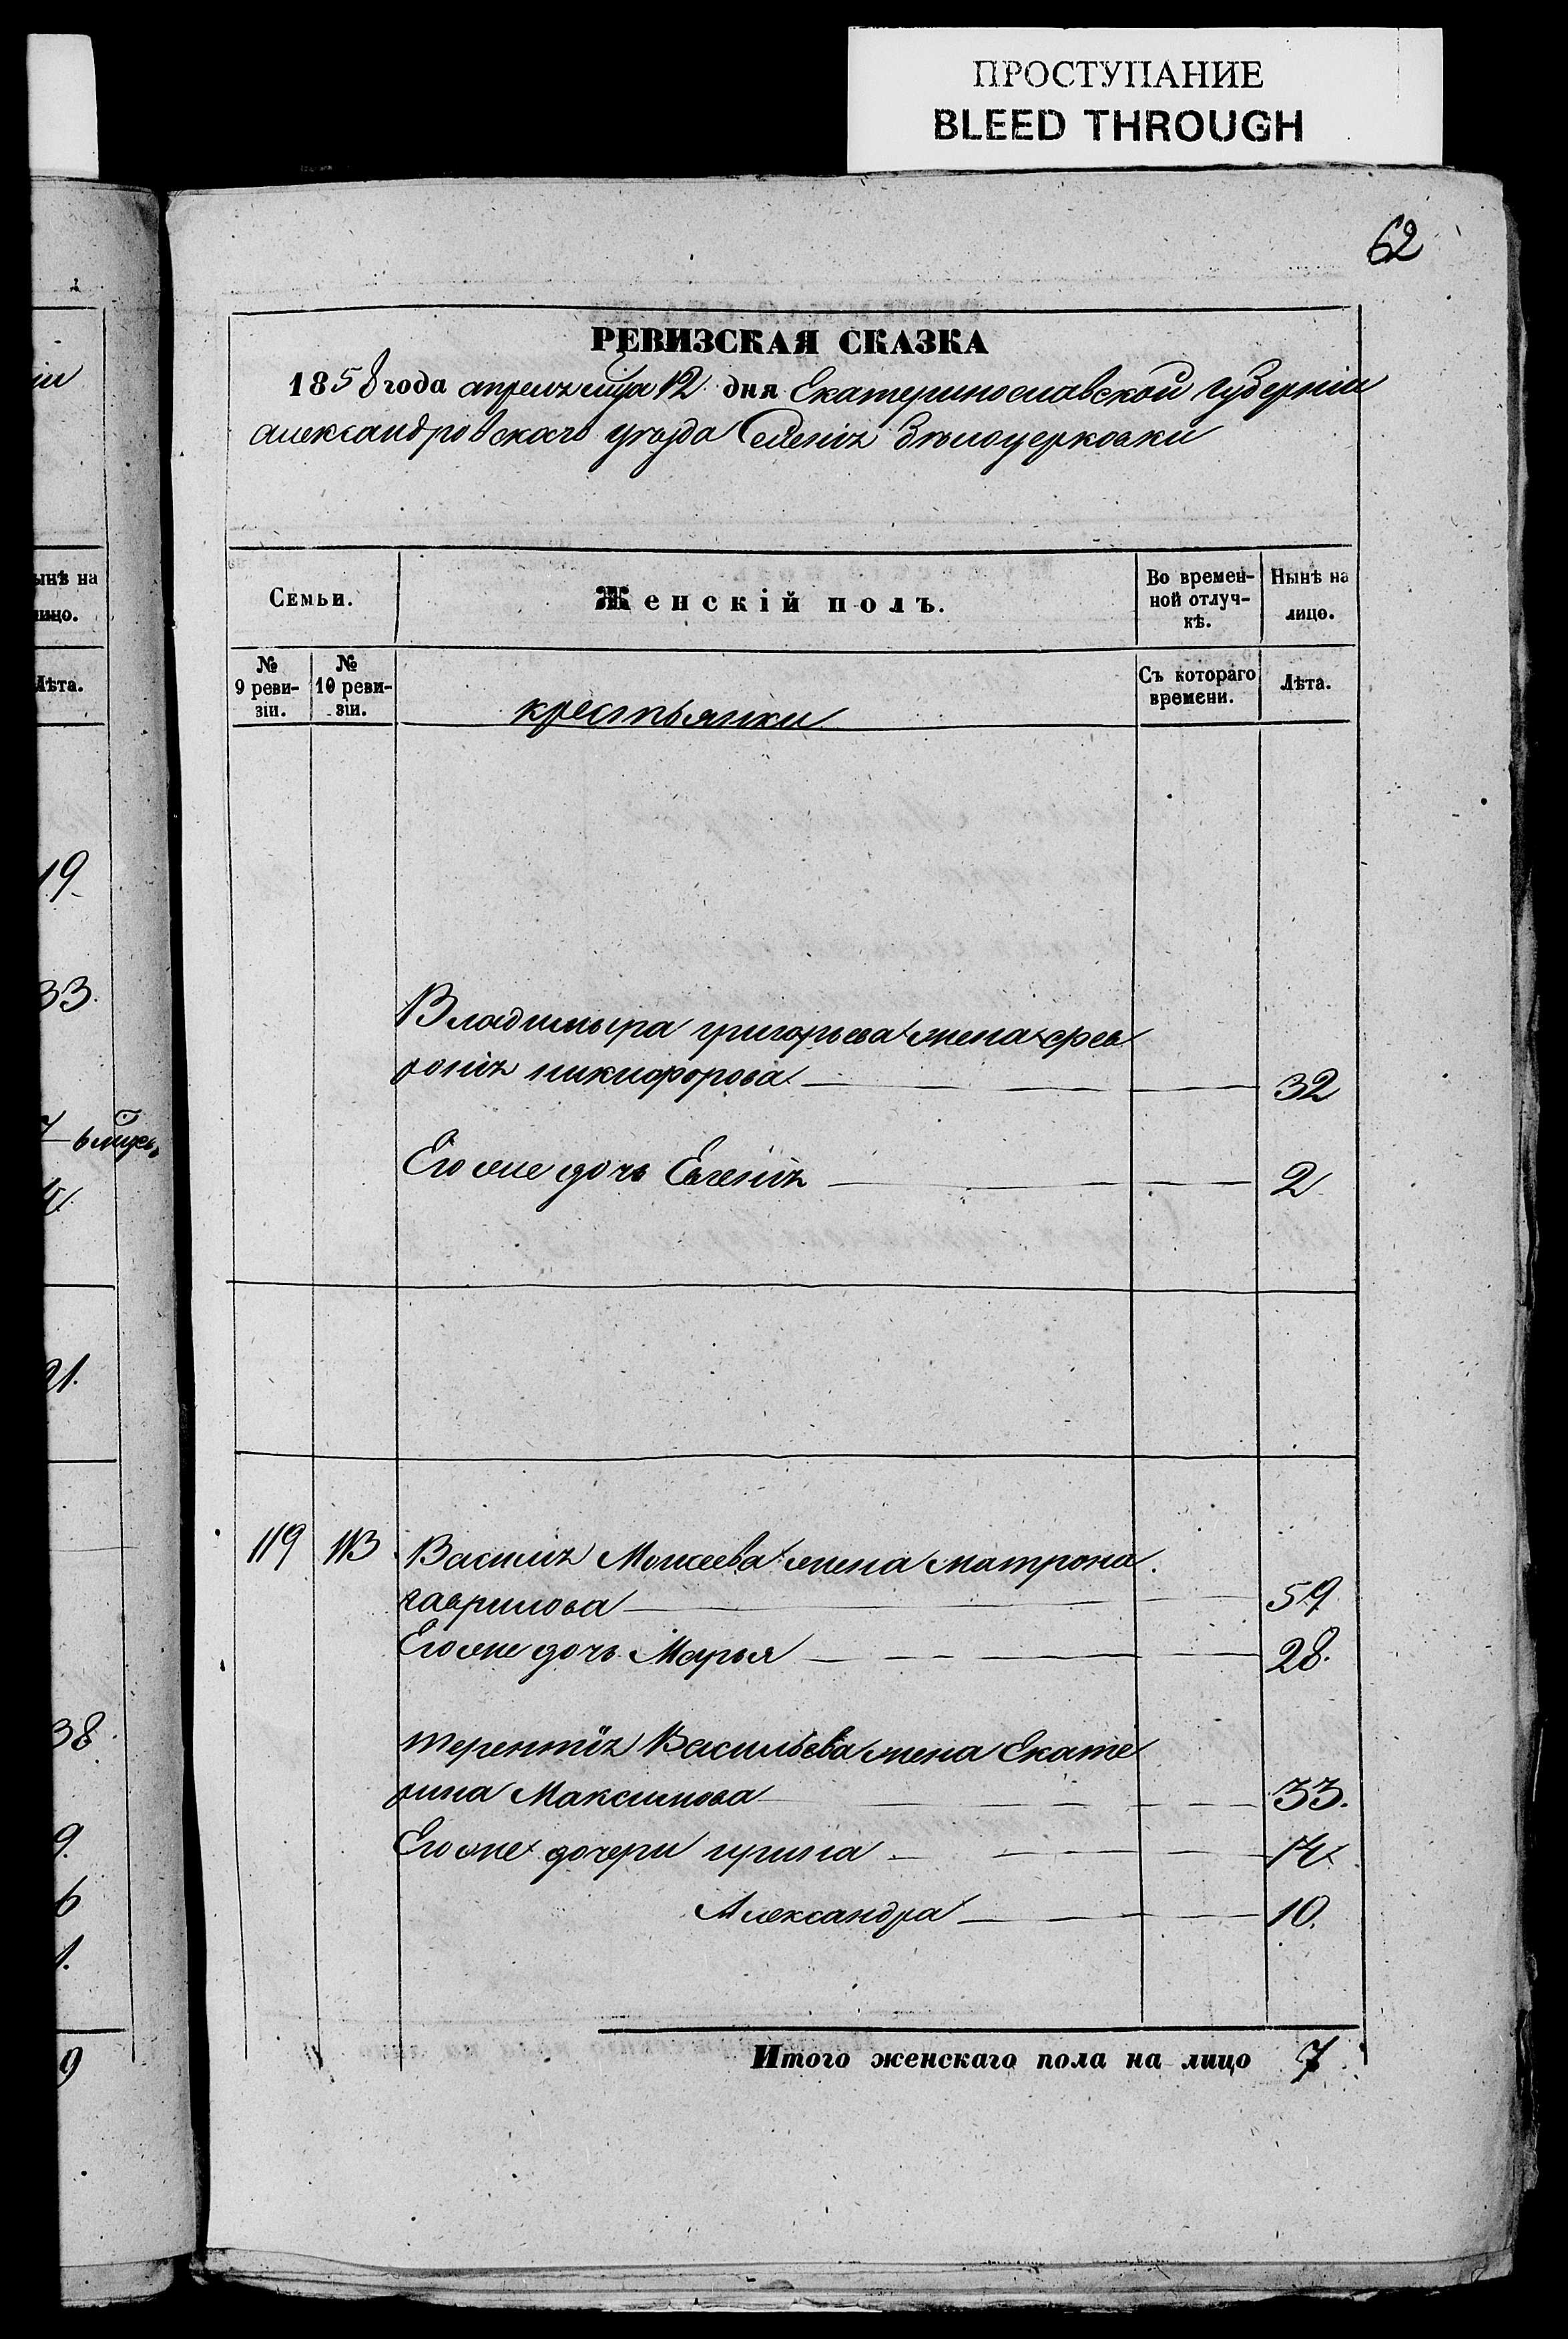 ПРОСТУПАНИЕ
BLEED THROUGH
62
РЕВИЗСКАЯ СКАЗКА
1858 года апреля мца 12 дня Екатеринославской губернии
александровского уезда Селения Белоцерковки
Семьи.
Женскій полъ.
Во времен-
ной отлуч-
кѣ.
Нынѣ на
лицо.
№
9 реви-
зіи.
№
10 реви-
зіи.
крестьянки
Съ котораго
времени.
Лѣта.
Владимыра григорьева жена фев
ронія никифорова 32
Его же дочь Евгенія 2
119 113 Василія Моисеева жена матрона
гаврилова 59
Его же дочь Марья 28.
терентія Васильева жена Екате
рина Максимова 33.
Его же дочери ирина 14
Александра 10.
Итого женскаго пола на лицо 7
ынѣ на
лицо.
Лѣта.
19
33.
4
21.
38
9
6
1.
9